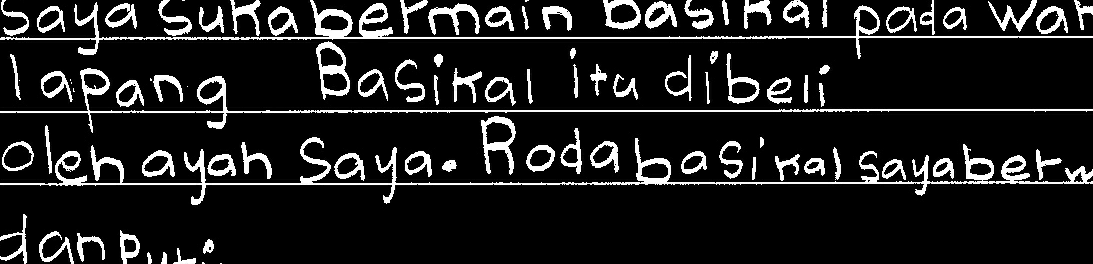 saya suka bermain basikal pada wak
lapang Basikal itu dibeli
oleh ayah saya. Roda basikal saya berw
dan puti